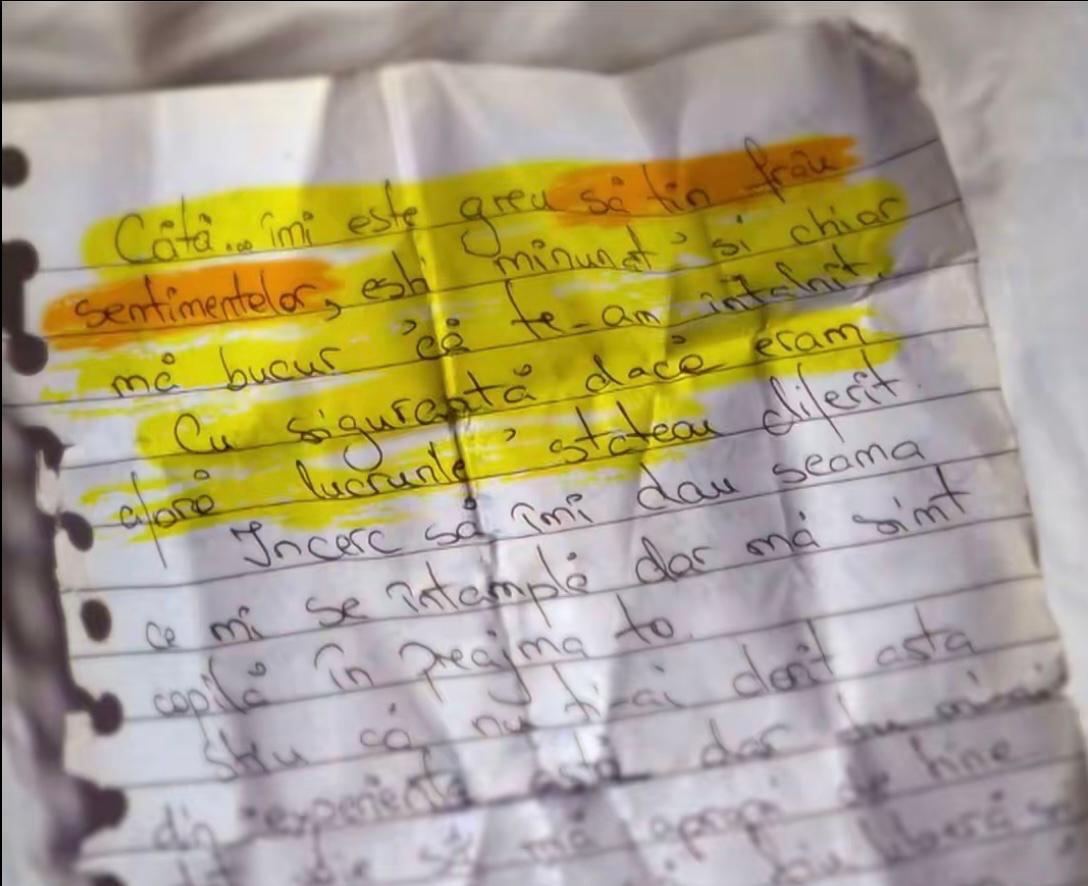 Câtă... îmi este greu să țin frâu
sentimentelor, ești minunat și chiar
mă bucur că te-am întâlnit,
Cu siguranță dacă eram
afară lucrurile stăteau diferit.
Încerc să îmi dau seama
ce mi se întâmplă dar mă simt
copilă în preajma ta.
Știu că nu ți-ai dorit asta
din experiența asta dar
să mă apropii de tine